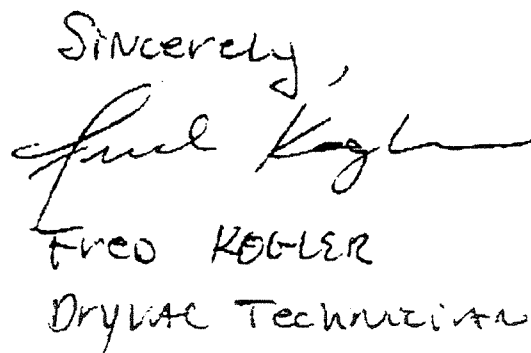 Sincerely,
Fred Kogler
Fred KOGLER
Dryvac Technician